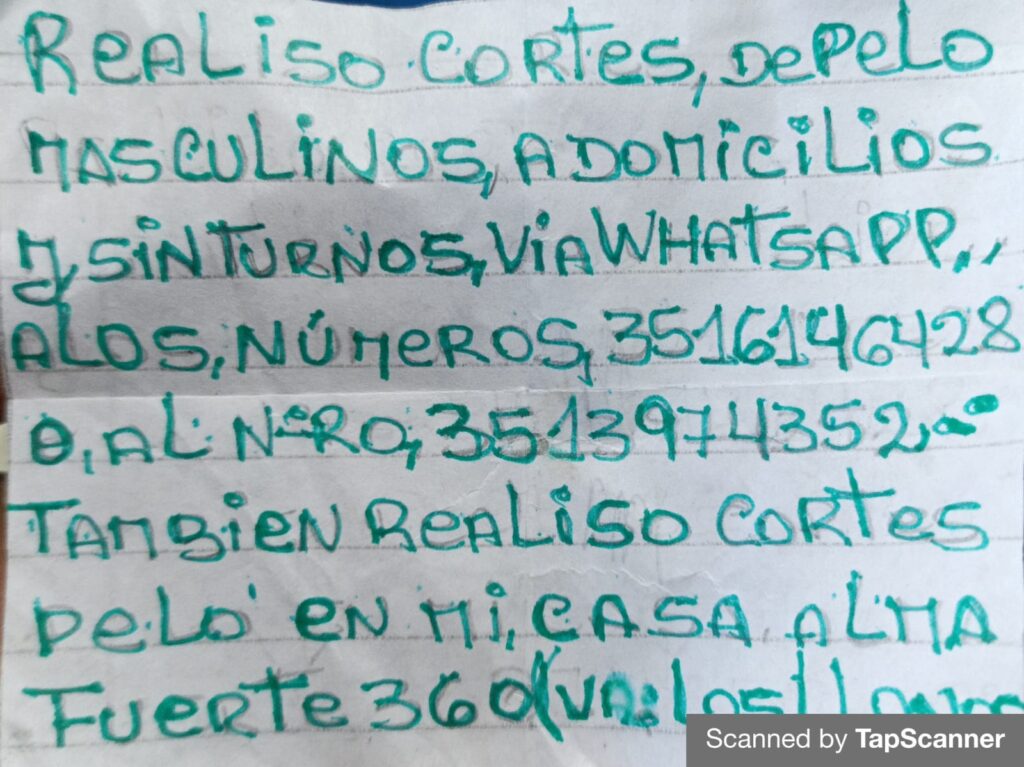 REALISO CORTES, DE PELO
MASCULINOS, A DOMICILIOS
Y SIN TURNOS, VIA WHATSAPP,,
A LOS, NÚMEROS, 3516146428
O, AL NºRO, 3513974352,-
TAMBIEN REALISO CORTES
PELO EN MI, CASA, ALMA
FUERTE 360 (VA: LOS
Scanned by TapScanner